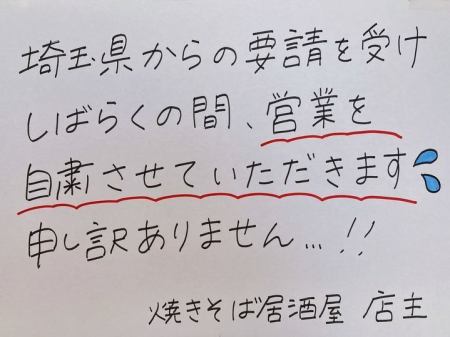 埼玉県からの要請を受け
しばらくの間、営業を
自粛させていただきます
申し訳ありません...!!
焼きそば居酒屋 店主